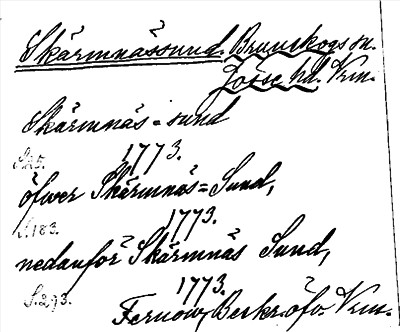 Skärmnässund. Brunskogs sn.
Jösse hd. Vrm.
Skärmnäs=sund
1773.
S. 25.
öfwer Skärmnäs=Sund,
1773.
S. 183.
nedanför Skärmnäs Sund,
1773.
S. 293.
Fernow, Beskr. öfv. Vrm.